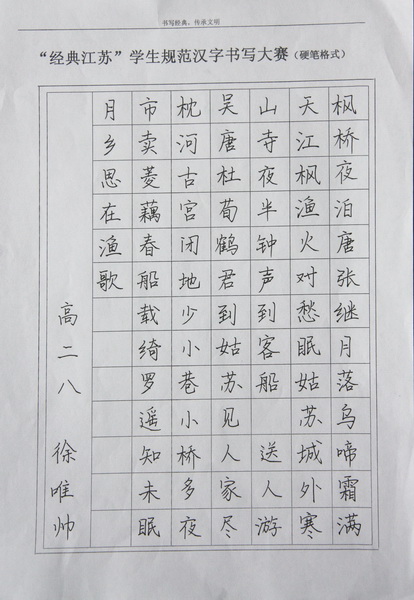 书写经典，传承文明
“经典江苏”学生规范汉字书写大赛(硬笔格式)
枫桥夜泊唐张继月落乌啼霜满
天江枫渔火对愁眠姑苏城外寒
山寺夜半钟声到客船 送人游
吴唐杜荀鹤君到姑苏见人家尽
枕河古宫闭地少小巷小桥多夜
市卖菱藕春船载绮罗遥知未眠
月乡思在渔歌
高二八 徐唯帅